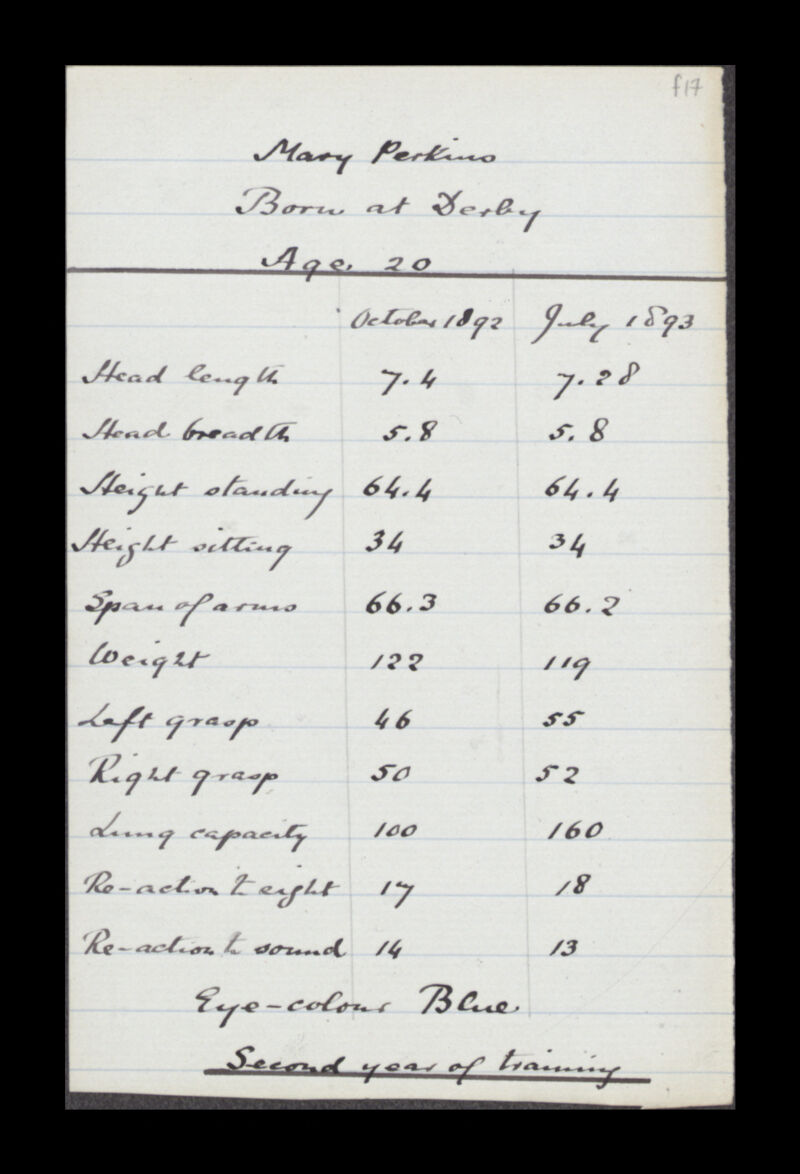 f17
Mary Perkins
Born at Derby
Age. 20
October 1892 July 1893
Head length 7.4 7.28
Head breadth 5.8 5.8
Height standing 64.4 64.4
Height sitting 34 34
Span of arms 66.3 66.2
Weight 122 119
Left grasp 46 55
Right grasp 50 52
Lung capacity 100 160
Re-action to sight 17 18
Re-action to sound 14 13
Eye-colour Blue
Second year of training